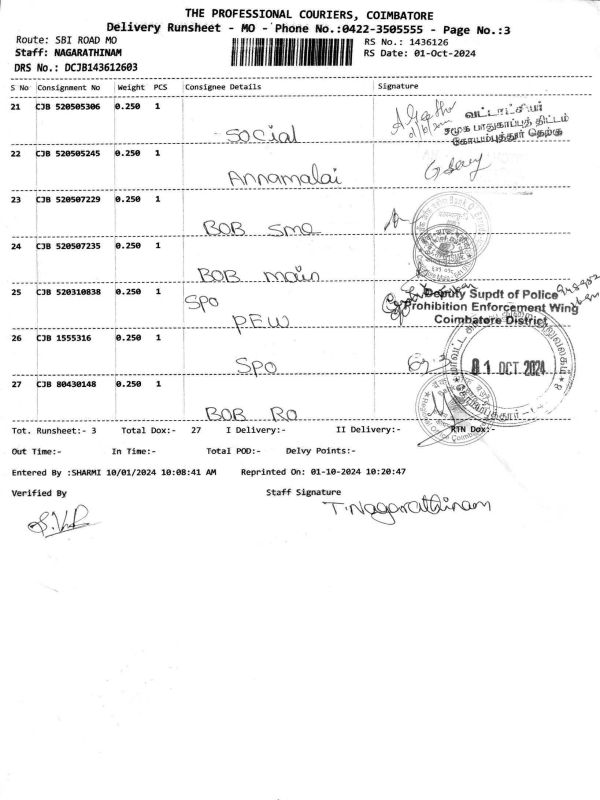 THE PROFESSIONAL COURIERS, COIMBATORE
Delivery Runsheet - MO - Phone No.:0422-3505555 - Page No.:3
Route: SBI ROAD MO RS No.: 1436126
Staff: NAGARATHINAM RS Date: 01-Oct-2024
DRS No.: DCJB143612603
S No Consignment No Weight PCS Consignee Details Signature
21 CJB 520505306 0.250 1
வட்டாட்சியர்
சமூக பாதுகாப்புத் திட்டம்
கோயம்புத்தூர் தெற்கு
Social
22 CJB 520505245 0.250 1
Annamalai
23 CJB 520507229 0.250 1
BOB SME
24 CJB 520507235 0.250 1
BOB main
25 CJB 520310838 0.250 1 SPO
Deputy Supdt of Police
Prohibition Enforcement Wing
Coimbatore District
PEW
26 CJB 1555316 0.250 1
SPO
01 OCT 2024
27 CJB 80430148 0.250 1
BOB RO
Tot. Runsheet:- 3 Total Dox:- 27 I Delivery:- II Delivery:- RTN Dox:-
Out Time:- In Time:- Total POD:- Delvy Points:-
Entered By :SHARMI 10/01/2024 10:08:41 AM Reprinted On: 01-10-2024 10:20:47
Verified By Staff Signature
T. Nagarathinam